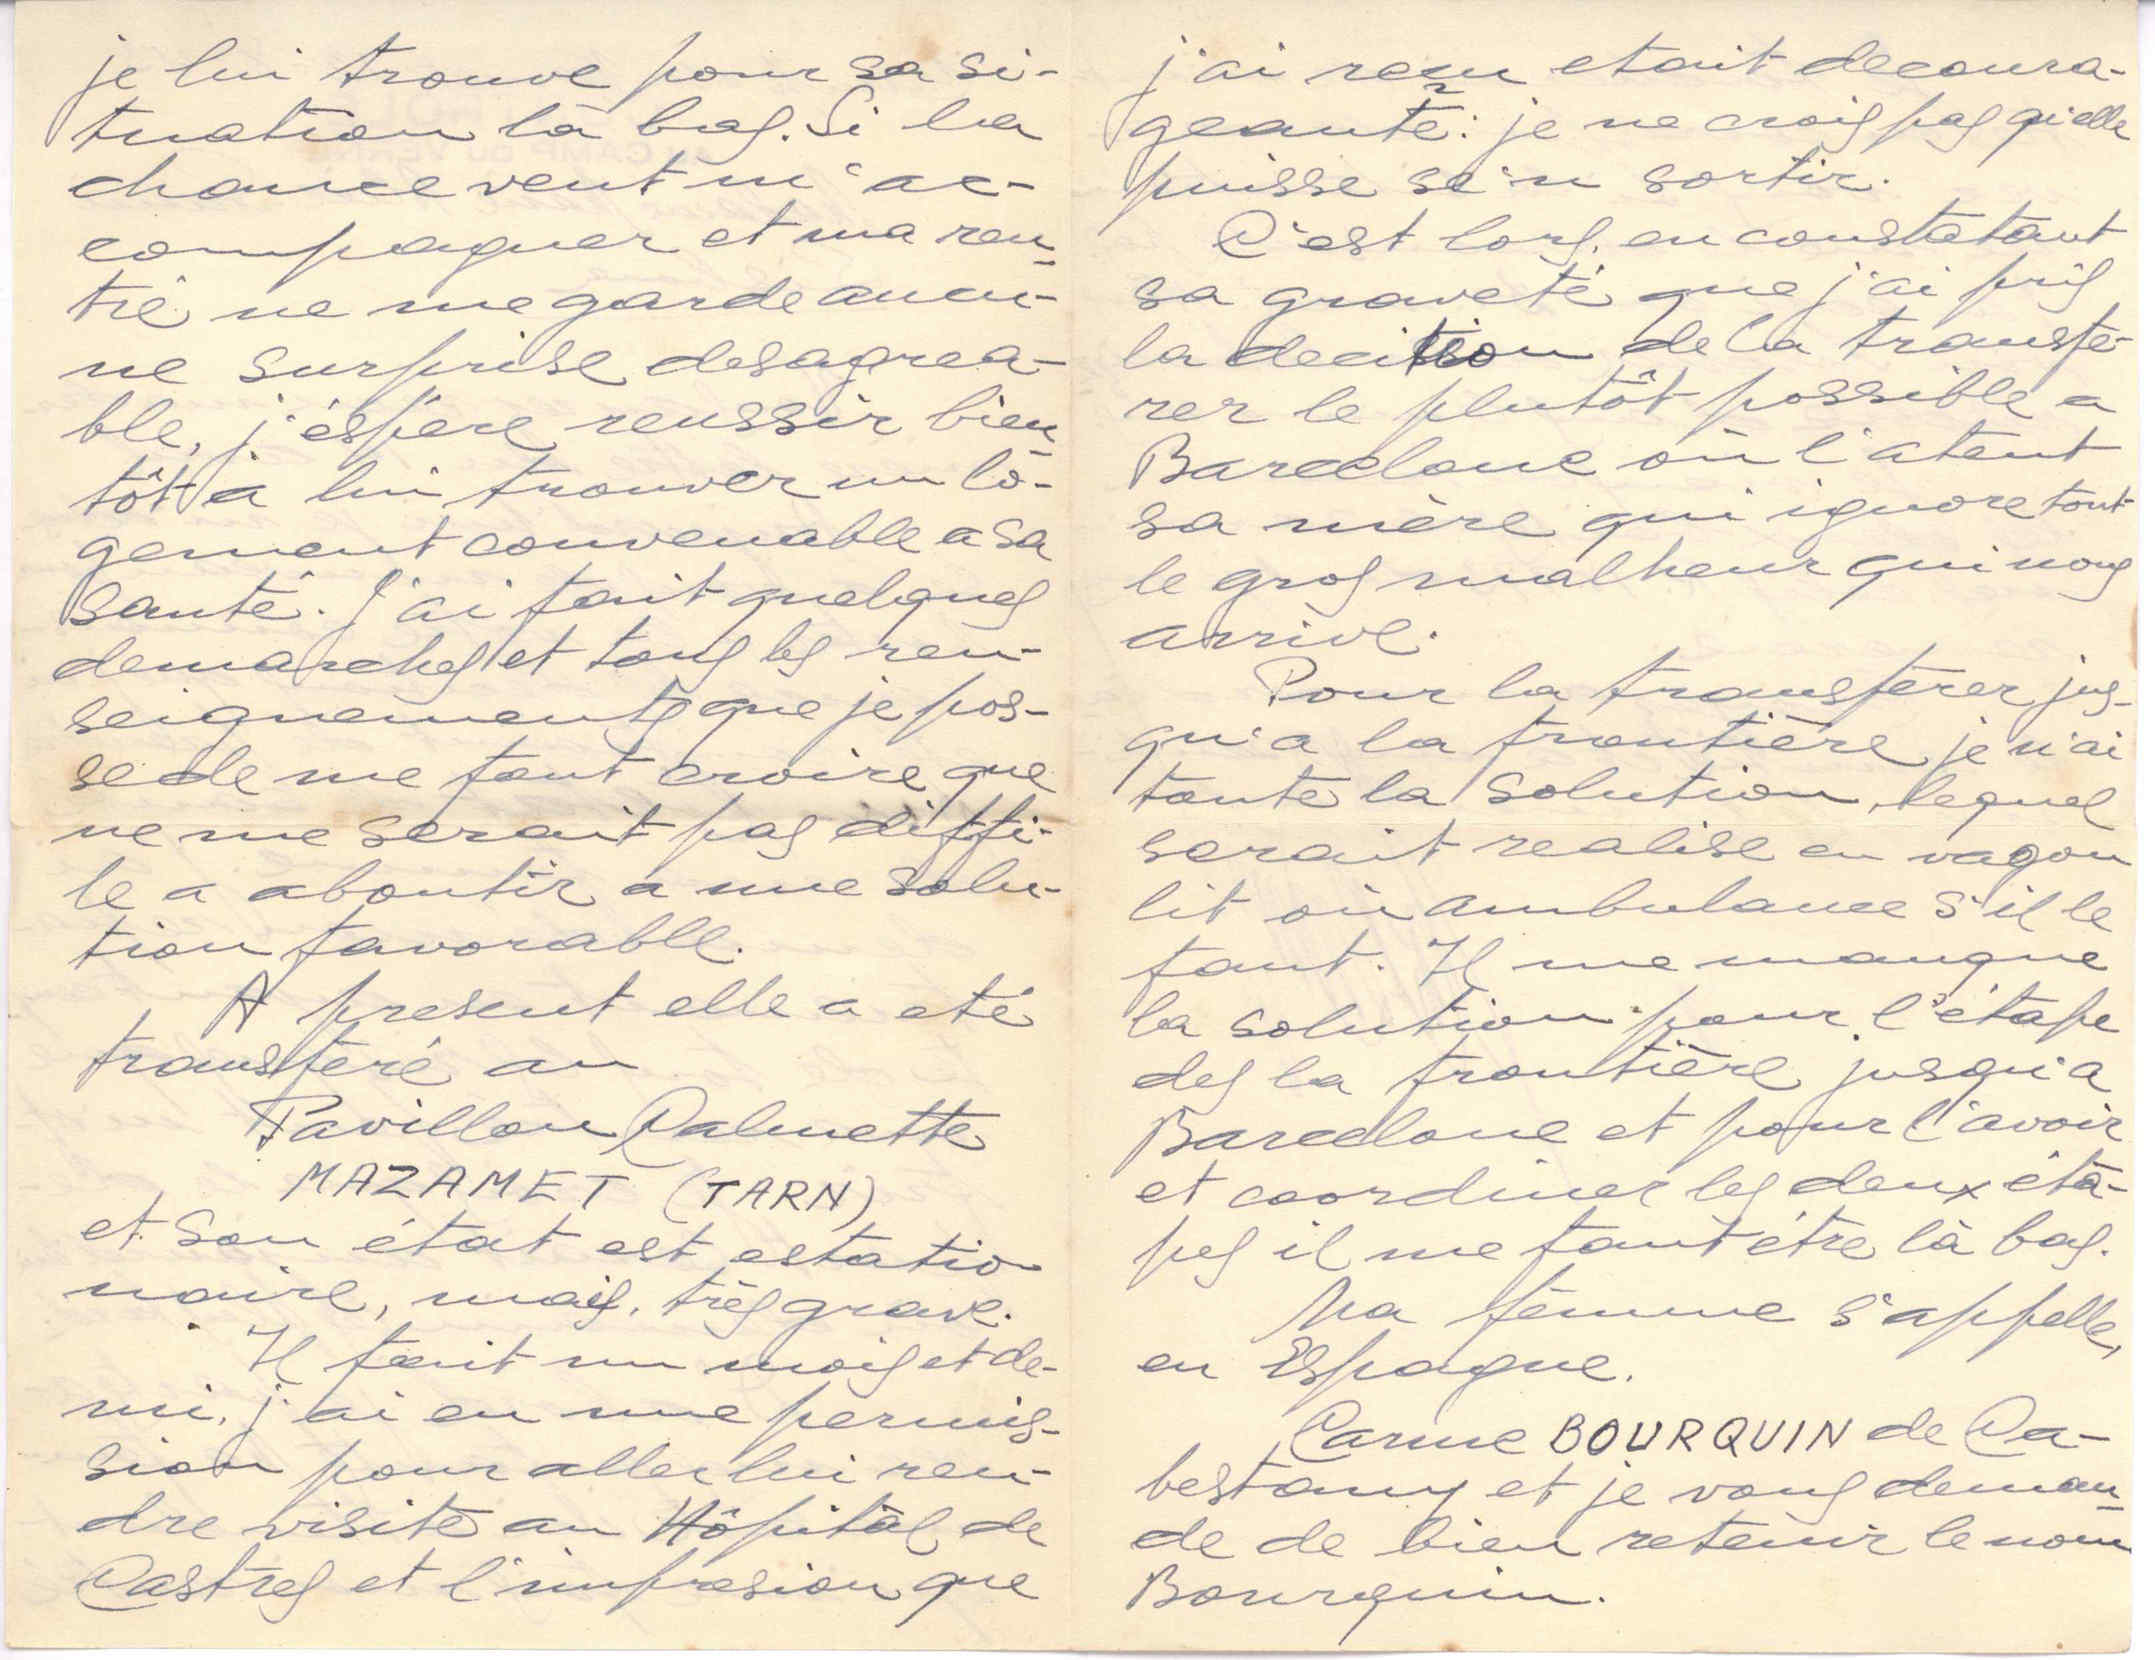 je lui trouve pour sa si-
tuation là bas. Si la
chance veut m'ac-
compagner et ma ren-
tré ne me garde aucu-
ne surprise desagrea-
ble, j'éspère reussir bien-
tôt a lui trouver un lo-
gement convenable a sa
santé. J'ai fait quelques
demarches et tous les ren-
seignements que je pos-
sede me font croire que
ne me serait pas diffi-
le a aboutir a une solu-
tion favorable.
A present elle a eté
transferé au
Pavillon Calmette
MAZAMET (TARN)
et son état est estatio
naire, mais, très grave.
Il fait un mois et de-
mi, j'ai eu une permis-
sion pour aller lui ren-
dre visite au Hôpitâl de
Castres et l'impresion que
j'ai reçu etait decoura-
geante: je ne crois pas qu'elle
puisse se'n sortir.
C'est lors, en constatant
sa graveté que j'ai pris
la decition de la transfe-
rer le plutôt possible a
Barcelone où l'atent
sa mère qui ignore tout
le gros malheur qui nous
arrive.
Pour la transférer jus-
qu'a la frontière je n'ai
toute la solution, lequel
serait realise en vagon
lit où ambulance s'il le
faut. Il me manque
la solution pour l'étape
des la frontière jusqu'a
Barcelone et pour l'avoir
et coordiner les deux éta-
pes il me faut être là bas.
Ma femme s'appelle,
en Espagne.
Carme BOURQUIN de Ca-
bestany et je vous deman-
de de bien retenir le nom
Bourquin.